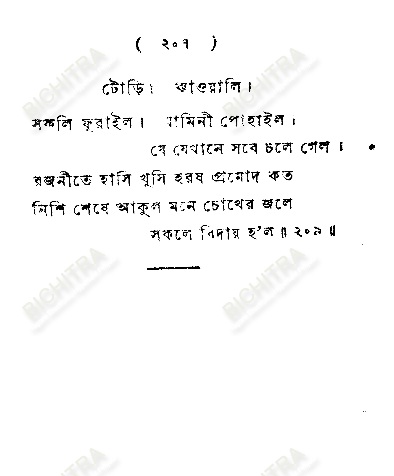 ( ২০৭ )
টোড়ি। কাওয়ালি।
সকলি ফুরাইল। যামিনী পোহাইল।
যে যেখানে সবে চলে গেল।
রজনীতে হাসি খুসি হরষ প্রমোদ কত
নিশি শেষে আকুল মনে চোখের জলে
সকলে বিদায় হ'ল॥২০৯॥
BICHITRA
BICHITRA
BICHITRA
BICHITRA
BICHITRA
BICHITRA